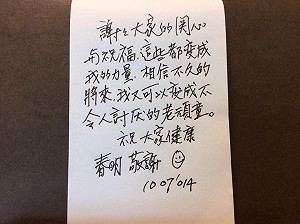 謝謝大家的関心
与祝福,這些都变成
我的力量,相信不久的
將來,我又可以变成不
令人討厌的老頑童。
祝大家健康
春明 敬謝
10 07 '014